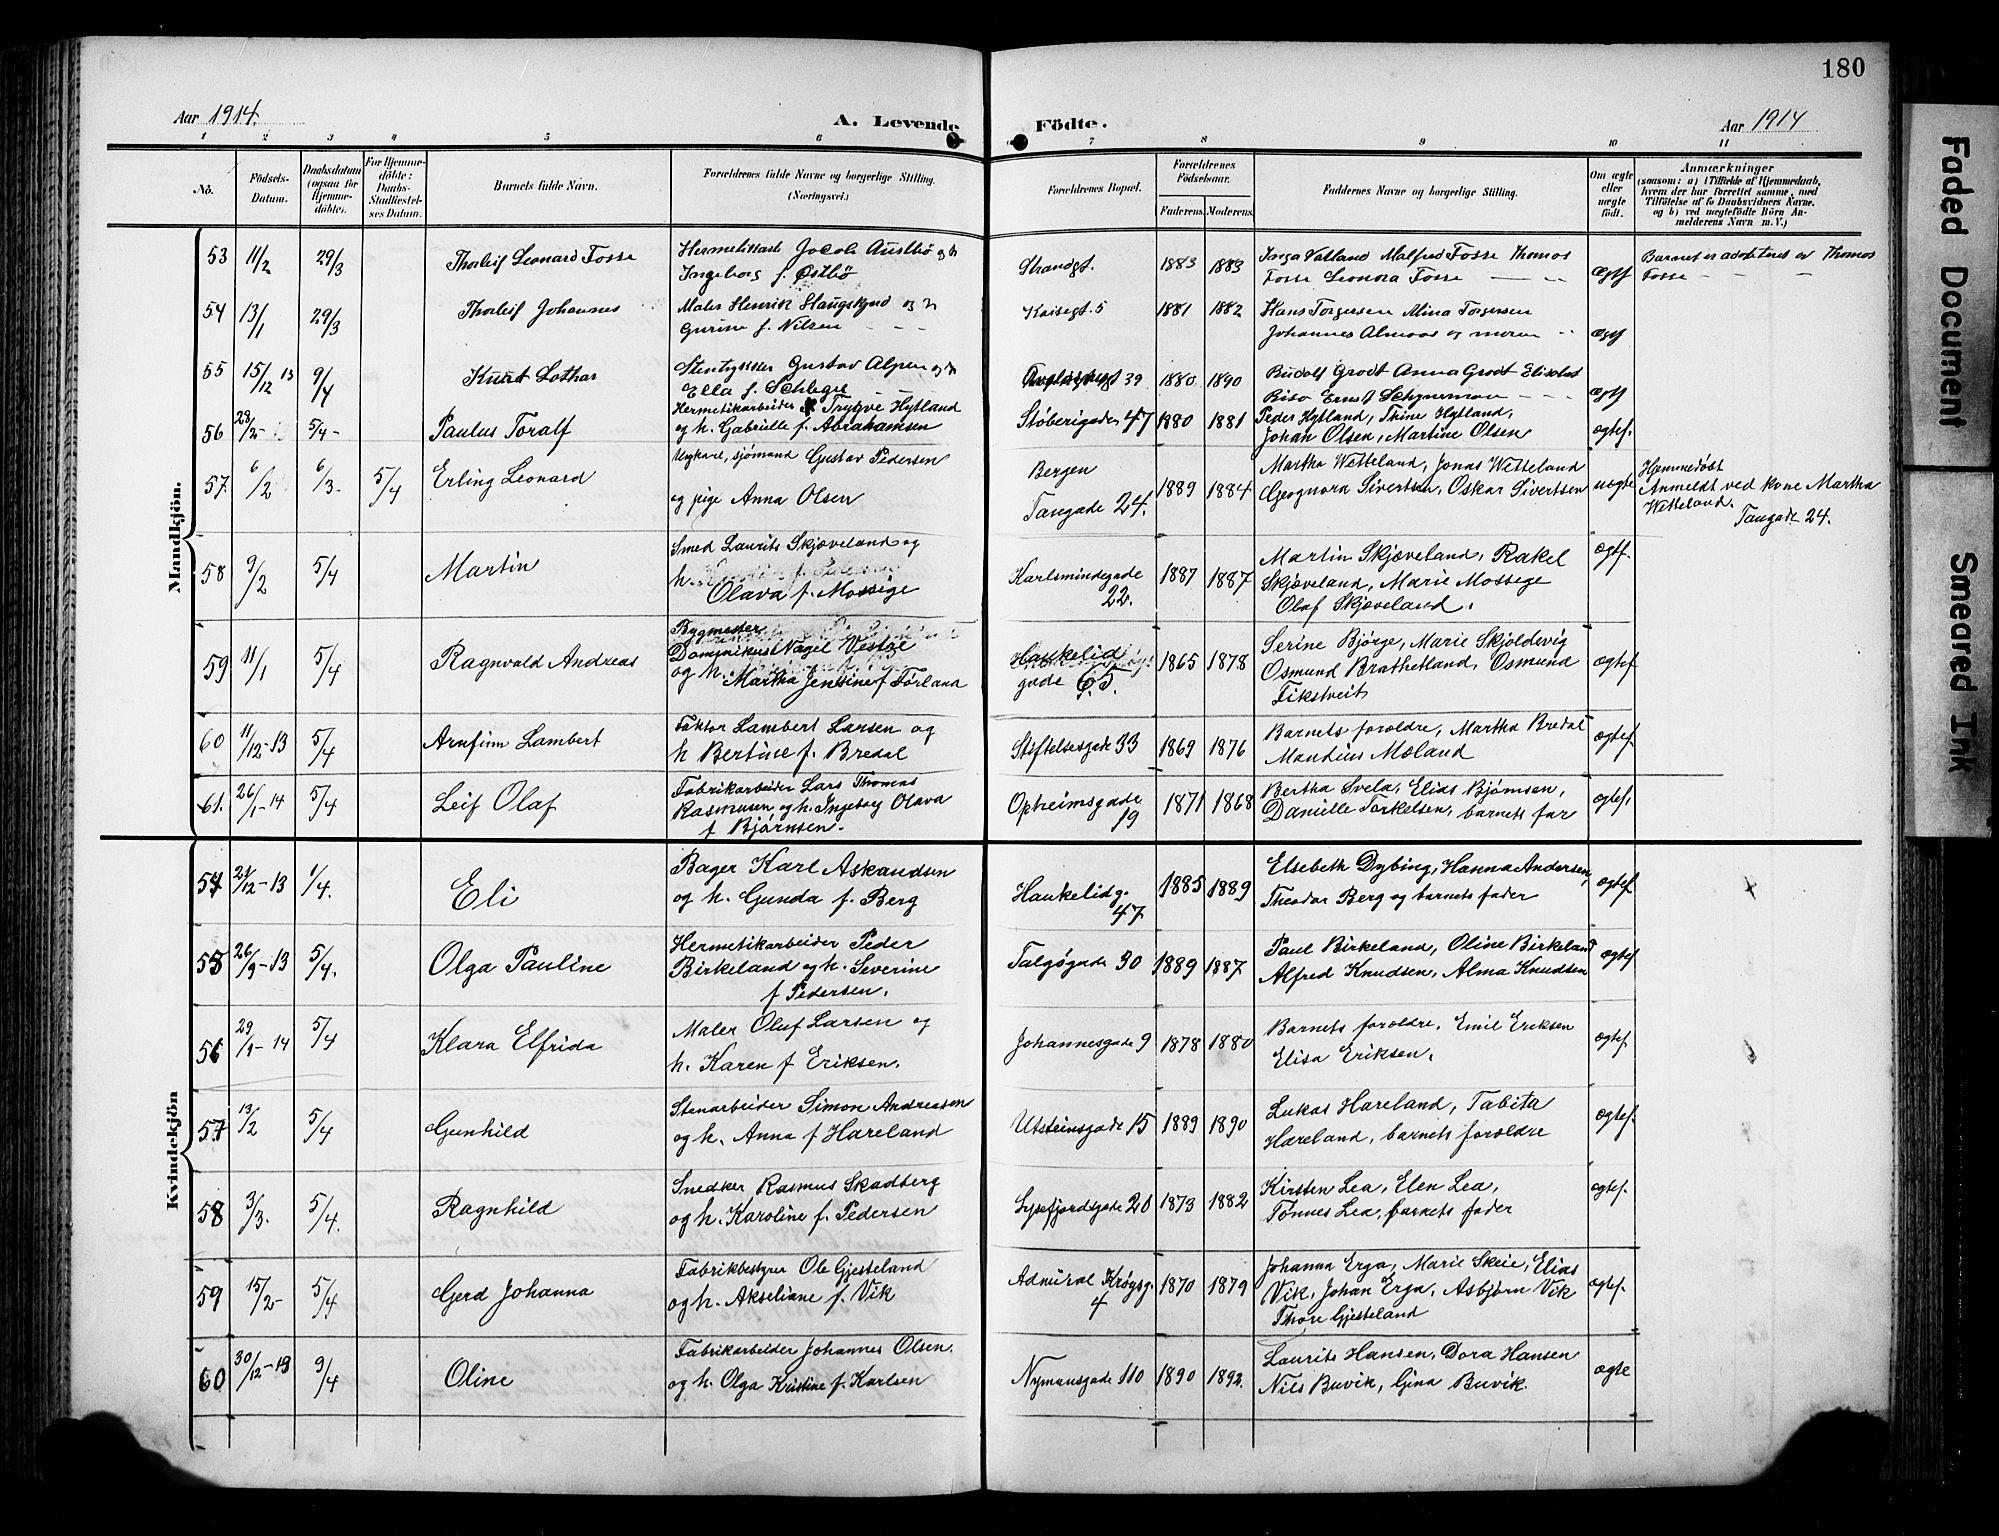 180
Aar 1914.
A. Levende Födte.
Aar 1914
1 2 3 4 5 6 7 8 9 10 11
No.
Födsels-
Datum.
Daabsdatum
(ogsaa for
Hjemme-
döbte).
For Hjemme-
döbte:
Daabs-
Stadfæstel-
ses Datum.
Barnets fulde Navn.
Forældrenes fulde Navne og borgerlige Stilling.
(Næringsvei.)
Forældrenes Bopæl.
Forældrenes
Födselsaar.
Faderens. Moderens.
Faddernes Navne og borgerlige Stilling.
Om ægte
eller
uægte
født.
Anmærkninger
(saasom: a) i Tilfælde af Hjemmedaab,
hvem der har forrettet samme, med
Tilföielse af to Daabsvidners Navne.
og b) ved uægtefödte Börn An-
melderens Navn m. V.)
Mandkjön.
53 11/2 29/3 Thorleif Leonard Fosse
Jacob Austbø og h
Ingeborg f. Østbø
Strandgt. 1883 1883
Inga Vatland Malfred Fosse Thomas
Fosse Leonora Fosse
ægt
Barnet er adopteret av Thomas
Fosse
54 13/1 29/3 Thorleif Johannes
Maler Henrik Haugskjerd og h
Gurine f. Nilsen
Kaisegt. 5 1881 1882
Hans Torgersen Mina Torgersen
Johannes Almaas og moren
ægt
55 15/12 13 9/4 Kurt Lothar
Gustav Alpen og h
Ella f. Schlegel
39 1880 1890
Rudolf Grodt Anna Grodt
Ernst
ægt
56 28/2 5/4 Paulus Toralf
Hermetikarbeider Trygve Hytland
og h. Gabrielle f. Abrahamsen
Støberigaden 47 1880 1881
Peder Hytland, Thine Hytland,
Johan Olsen, Martine Olsen
ægtef.
57. 6/2 6/3. 5/4 Erling Leonard
Ungkarl, sjömand Gustav Pedersen
og pige Anna Olsen
Bergen
Tangade 24. 1889 1884
Martha Wetteland, Jonas Wetteland
Sivertsen, Oskar Sivertsen
uægte
Hjemmedøbt
Anmeldt ved kone Martha
Wetteland.
Tangade 24.
58 9/2 5/4 Martin
Smed Laurits Skjæveland og
h.
Olava f. Mossige
Karlsmindegade
22. 1887 1887
Martin Skjæveland, Rakel
Skjæveland, Marie Mossige
Olaf Skjæveland.
ægtf.
59 11/1 5/4 Ragnvald Andreas
Bygmester
Dominikus Nagel Vestbø
og h. Martha Jensine f Førland
Haukelid
gade 65. 1865 1878
Serine Bjørge, Marie Skjoldevig
Osmund Brathetland, Osmund
Fikstveit
ægtef
60 11/12-13 5/4 Arnfinn Lambert
Faktor Lambert Larsen og
h Bertine f. Bredal
Stiftelsesgade 33 1869 1876
Barnets foreldre, Martha Bredal
Mandius Mæland
ægtef.
61. 26/1-14 5/4 Leif Olaf
Fabrikarbeider Lars Thomas
Rasmusen, og h. Ingeborg Olava
f Bjørnsen.
Opheimsgade
19 1871 1868
Bertha Svela, Elias Bjørnsen,
Danielle Torkelsen, barnets far
ægtef.
Kvindekjön
54 21/12-13 1/4. Eli
Bager Karl Askandsen
og h. Gunda f. Berg
Haukelidg.
47 1885 1889
Elsebeth Dybing, Hanna Andersen,
Theodor Berg og barnets fader
ægtef.
55 26/9-13 5/4. Olga Pauline
Hermetikarbeider Peder
Birkeland og h. Severine
f Pedersen.
Talgøgade 30 1889 1887
Paul Birkeland, Oline Birkeland
Alfred Knudsen, Alma Knudsen
ægtef.
56 29/1-14 5/4 Klara Elfrida
Maler Oluf Larsen og
h. Karen f Eriksen.
Johannesgade 9 1878 1880
Barnets foreldre, Emil Eriksen
Elisa Eriksen.
ægtef.
57 13/2 5/4 Gunhild
Stenarbeider Simon Andreasen
og h. Anna f Hareland
Utsteinsgade 15 1889 1890
Lukas Hareland, Tabita
Hareland, barnets foreldre
ægtef.
58 3/3. 5/4. Ragnhild
Snedker Rasmus Skadberg
og h. Karoline f. Pedersen
Lysefjordsgade 20 1873 1882
Kirsten Lea, Elen Lea,
Tønnes Lea, barnets fader
ægtef.
59 15/2- 5/4 Gerd Johanna
Fabrikbestyrer Ole Gjesteland
og h. Akseliane f. Vik
Admiral Krøysg.
4 1870 1879
Johanna Erga, Marie Skeie, Elias
Vik, Johan Erga, Asbjørn Vik
Thore Gjesteland
ægtef.
60 30/12-13 9/4 Oline
Fabrikarbeider Johannes Olsen
og h. Olga Kristine f. Karlsen
Nymansgade 110 1890 1892.
Laurits Hansen, Dora Hansen
Nils Buvik, Gina Buvik.
ægte
Faded Document
Smeared Ink